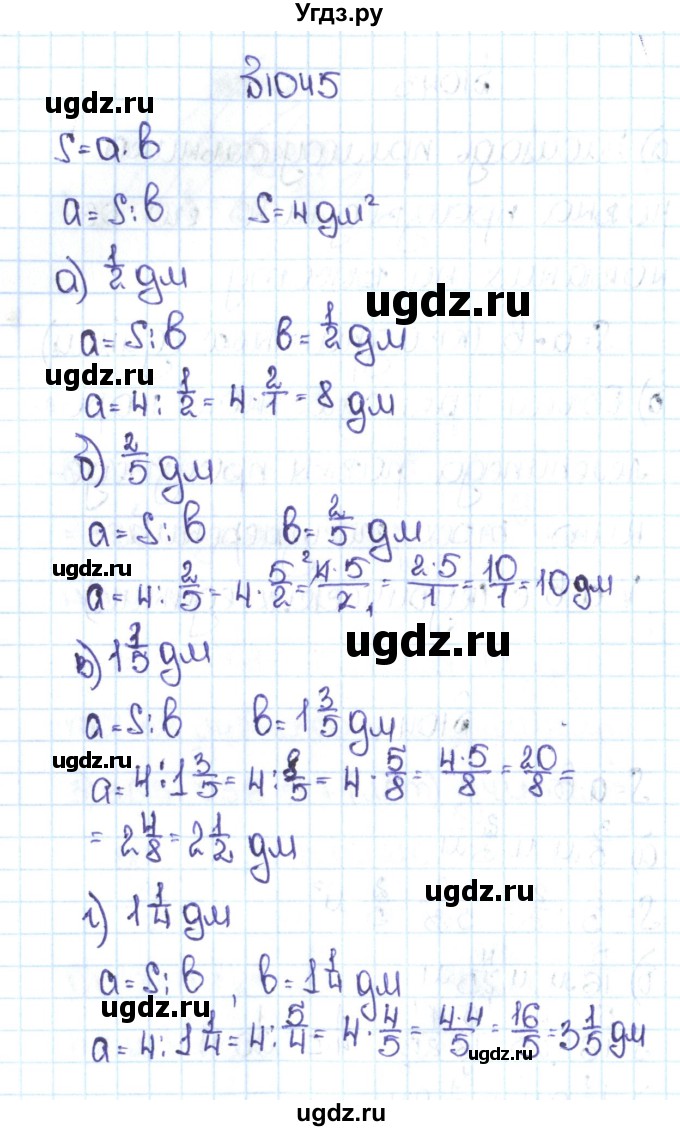 Угдз.ру
1045
ugdz.ru
S=a·b
a=S:b S=4 дм²
а) 1/2 дм
ugdz.ru
a=S:b b=1/2 дм
ugdz.ru
a=4:1/2=4·2/1=8 дм
б) 2/5 дм
a=S:b b=2/5 дм
ugdz.ru
a=4:2/5=4·5/2=4·5/2=2·5/1=10/1=10 дм
ugdz.ru
в) 1 3/5 дм
a=S:b b=1 3/5 дм
ugdz.ru
a=4:1 3/5=4:8/5=4·5/8=4·5/8=20/8=
=2 4/8=2 1/2 дм
ugdz.ru
г) 1 1/4 дм
a=S:b, b=1 1/4 дм
ugdz.ru
a=4:1 1/4=4:5/4=4·4/5=4·4/5=16/5=3 1/5 дм
ugdz.ru
ugdz.ru